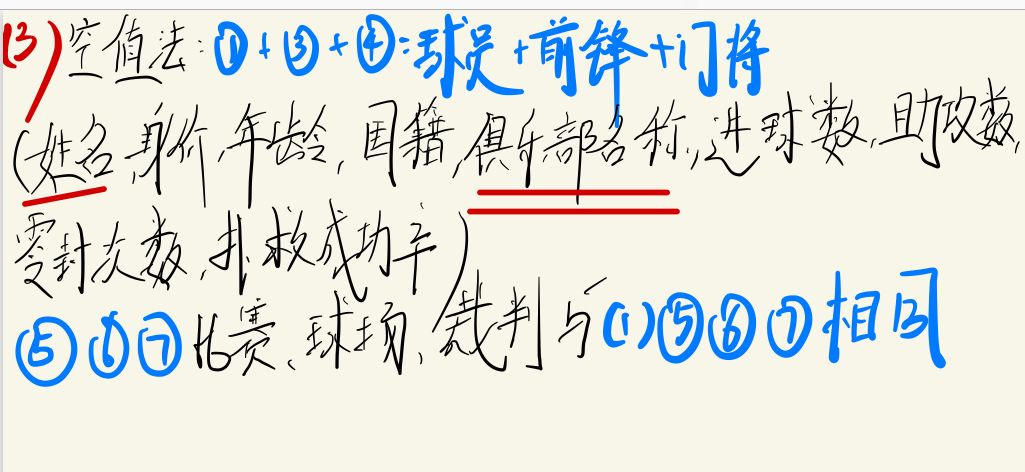 (3)空值法:①+③+④:球员+前锋+门将
(姓名,身价,年龄,国籍,俱乐部名称,进球数,助攻数,
零封次数,扑救成功率)
⑤⑥⑦比赛、球场、裁判与(1)⑤⑥⑦相同